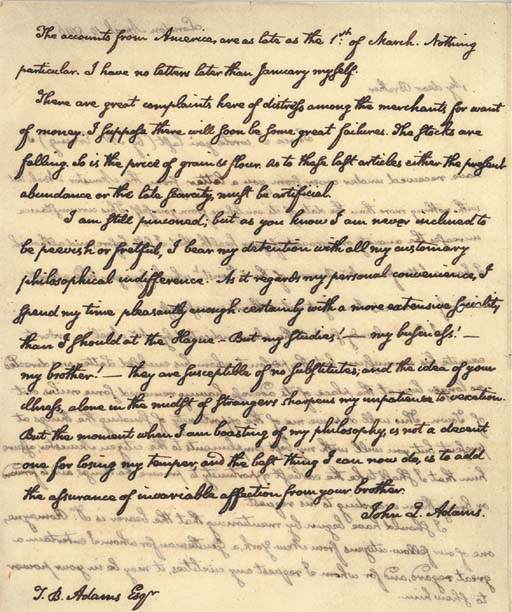 The accounts from America, are as late as the 1st: of March. Nothing
particular. I have no letters later than January myself.
There are great complaints here of distress among the merchants, for want
of money. I suppose there will soon be some great failures. The stocks are
falling. So is the price of grain & flour. As to these last articles either the present
abundance or the late scarcity, must be artificial.
I am still pinioned; but as you know I am never inclined to
be peevish or fretful, I bear my detention with all my customary
philosophical indifference. As it regards my personal convenience, I
spend my time pleasantly enough. certainly with a more extensive society,
than I should at the Hague — But my studies! — my business! —
my brother! — they are susceptible of no substitutes; and the idea of your
illness, alone in the midst of strangers sharpens my impatience to vexation.
But the moment when I am boasting of my philosophy, is not a decent
one for losing my temper, and the best thing I can now do, is to add
the assurance of invariable affection from your brother.
John Q. Adams.
T. B. Adams Esqr